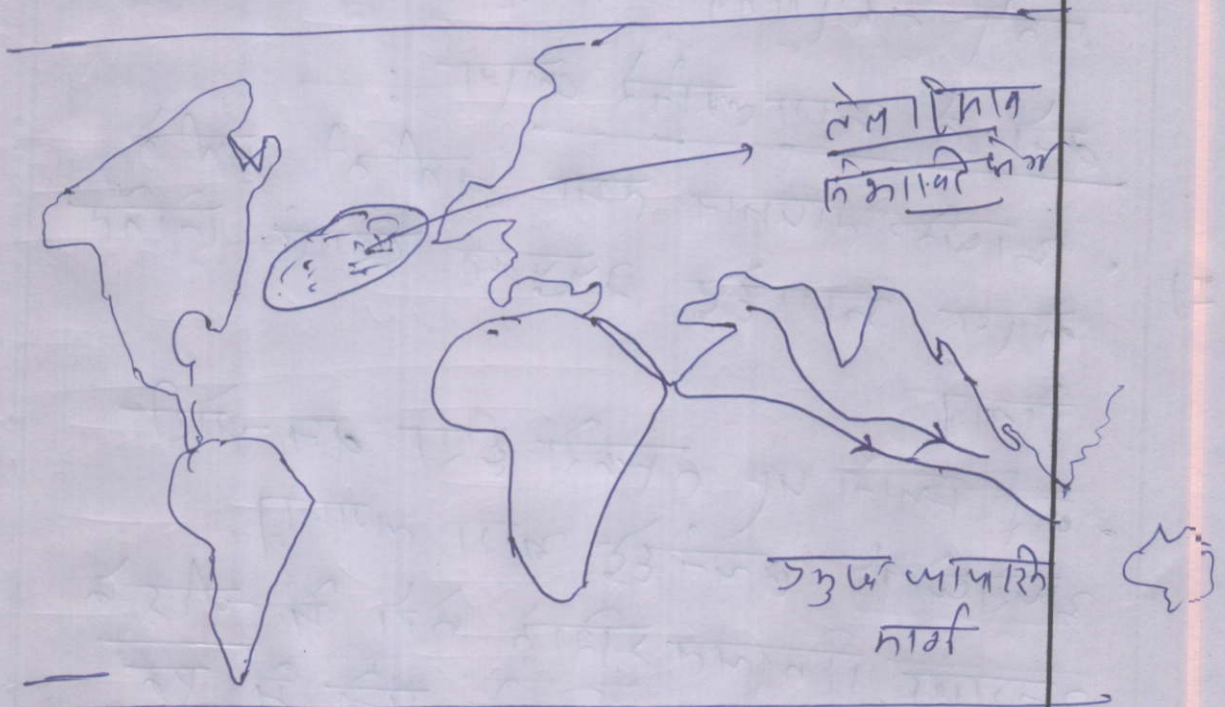 तेल रिसाव
प्रभावित क्षेत्र
प्रमुख व्यापारिक
मार्ग